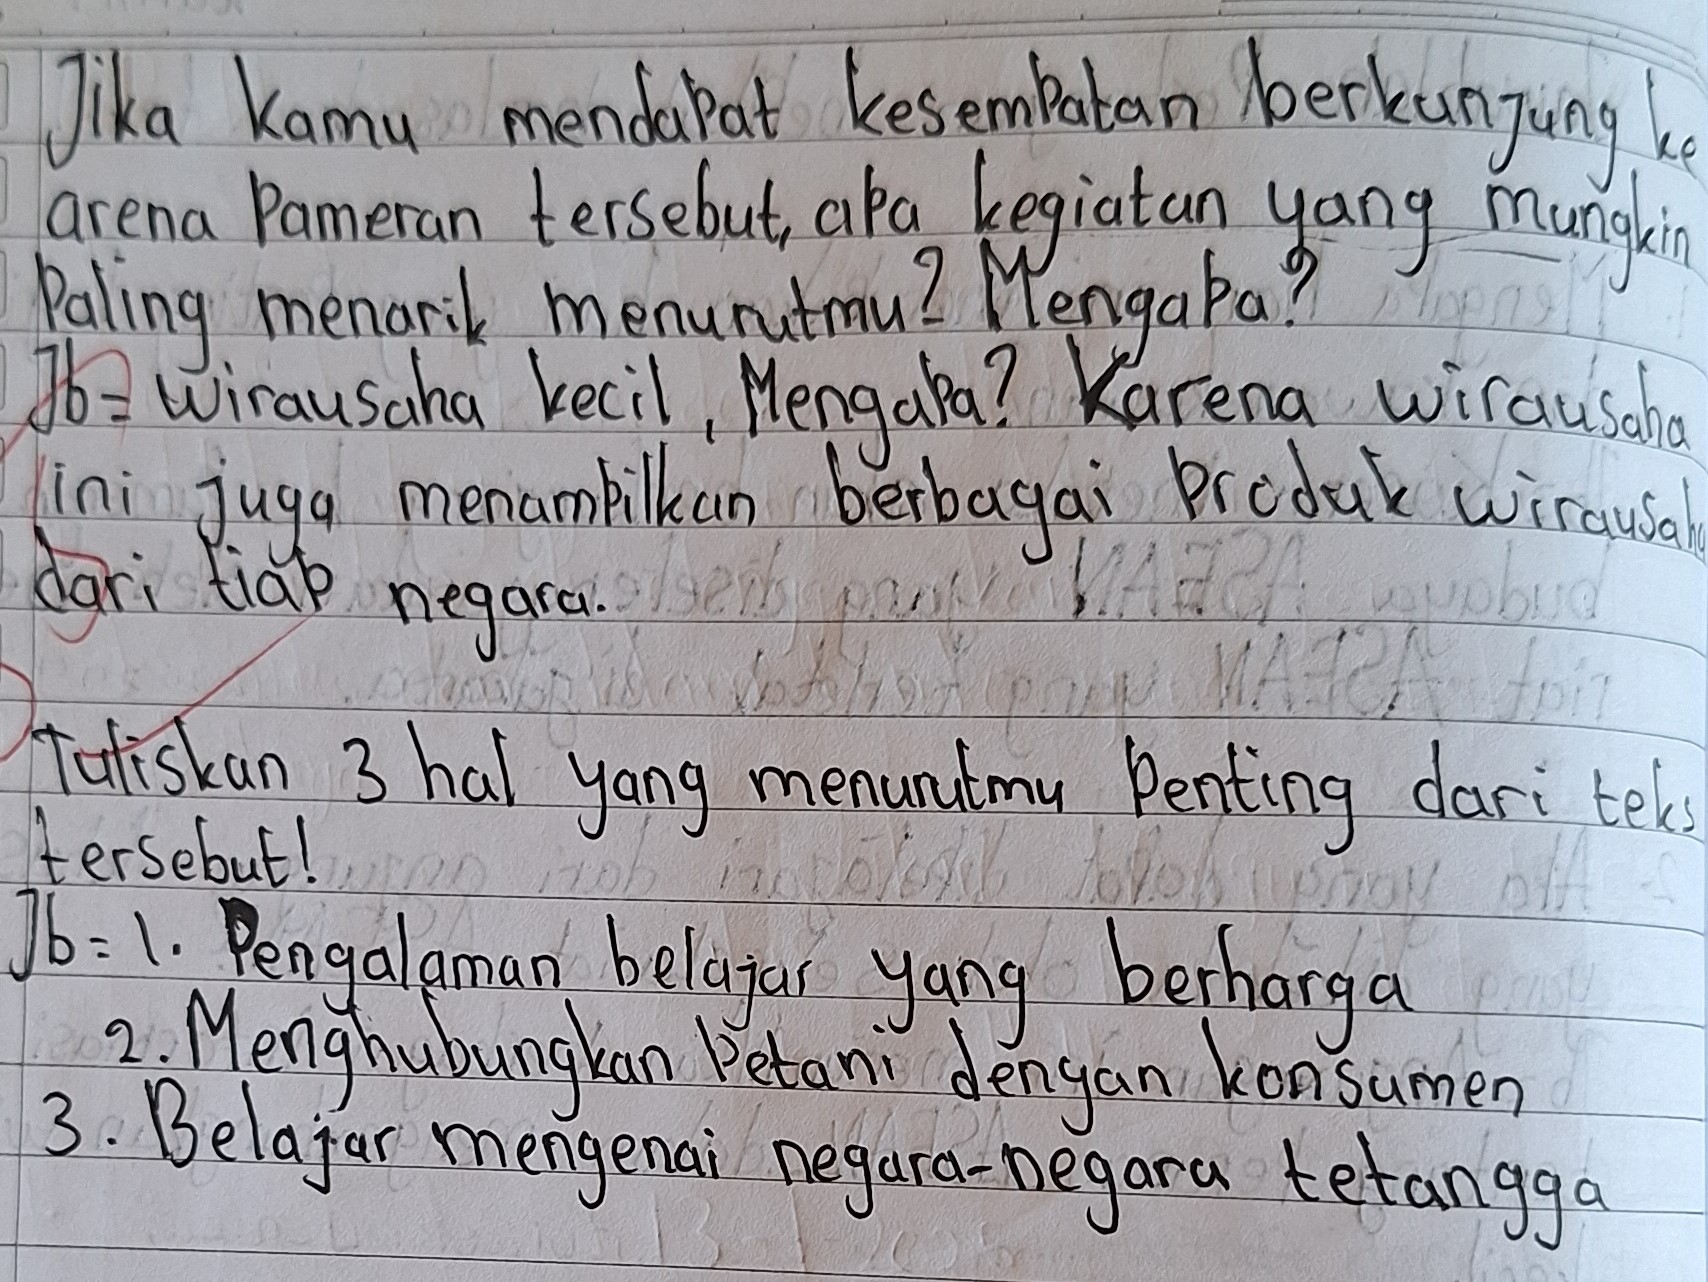 Jika kamu mendapat kesempatan berkunjung ke
arena pameran tersebut, apa kegiatan yang mungkin
paling menarik menurutmu? Mengapa?
Jb= wirausaha kecil, Mengapa? Karena wirausaha
ini juga menampilkan berbagai produk wirausaha
dari tiap negara.
Tuliskan 3 hal yang menurutmu penting dari teks
tersebut!
Jb= 1. Pengalaman belajar yang berharga
2. Menghubungkan petani dengan konsumen
3. Belajar mengenai negara-negara tetangga